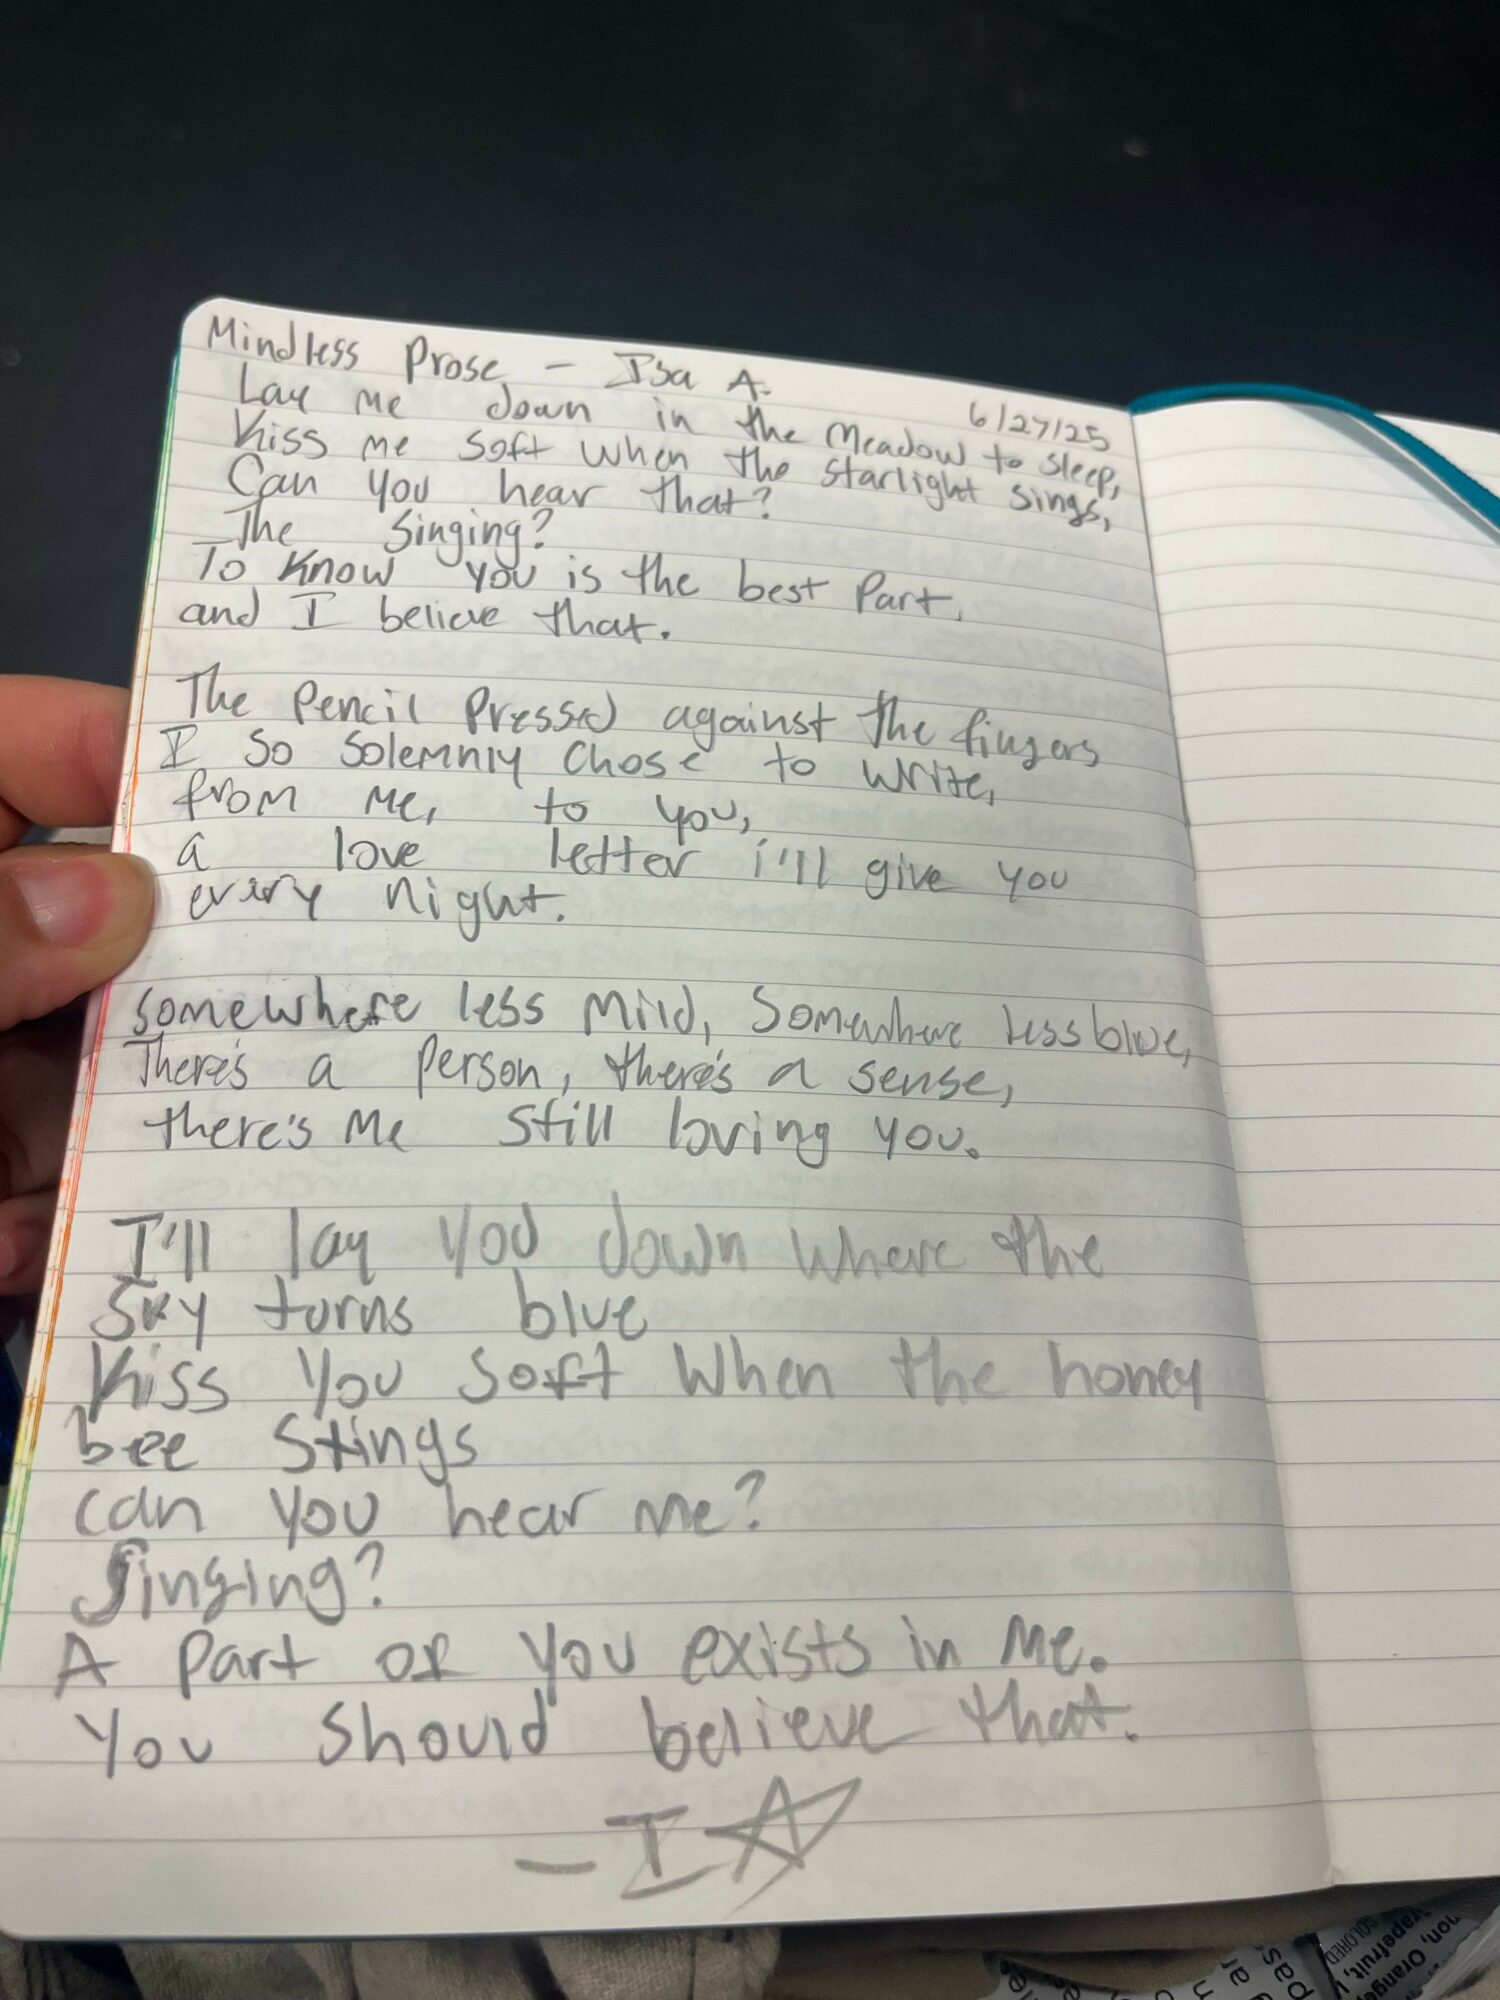 Mindless Prose – Isa A.
6/27/25
Lay me down in the Meadow to sleep,
Kiss me soft when the starlight sings,
Can you hear that?
The singing?
To Know you is the best Part,
and I believe that.
The Pencil Pressed against the fingers
I so solemnly chose to write,
from me, to you,
a love letter i'll give you
every night.
somewhere less Mild, Somewhere less blue,
There's a Person, there's a sense,
there's Me still loving you.
I'll lay you down where the
Sky turns blue
Kiss you soft when the honey
bee stings
can you hear me?
Singing?
A Part of you exists in Me.
You should believe that.
– IA
COLORED